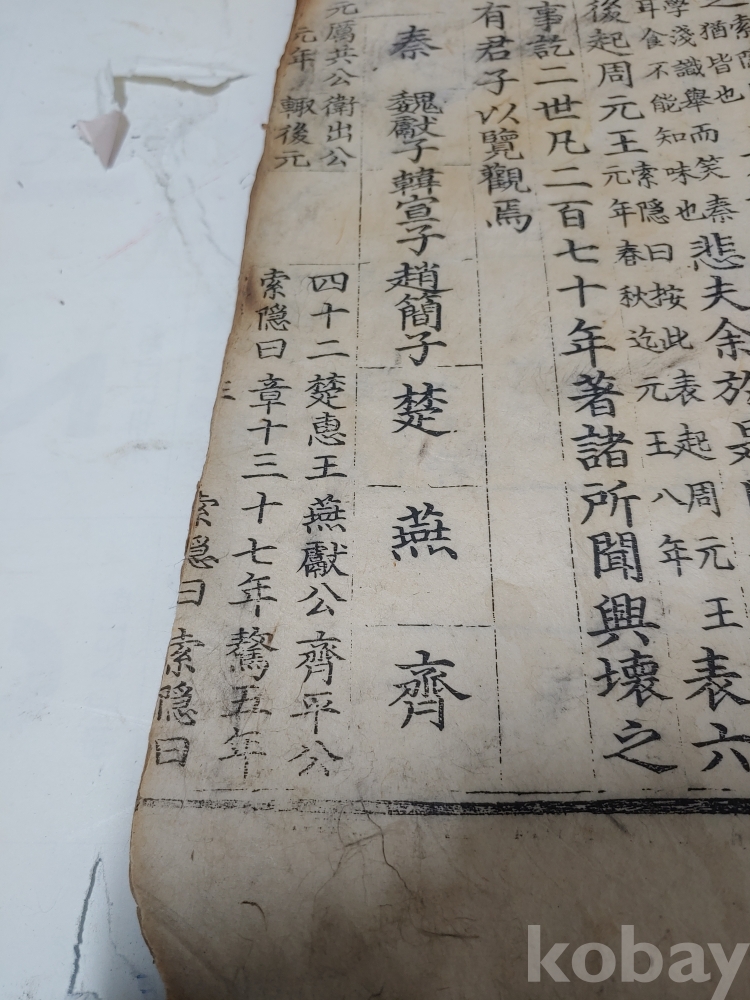 猶皆也
學淺識舉而笑秦
耳食不能知味也
悲夫余於
後起周元王
索隱曰按此表起周元王
元年春秋迄元王八年
表六
事訖二世凡二百七十年著諸所聞興壞之
有君子以覽觀焉
秦 魏獻子 韓宣子 趙簡子 楚 燕 齊
元厲共公 衛出公 四十二 楚惠王 燕獻公 齊平公
元年 輙後元 索隱曰 章十三 十七年 驁五年
索隱曰 索隱曰
kobay